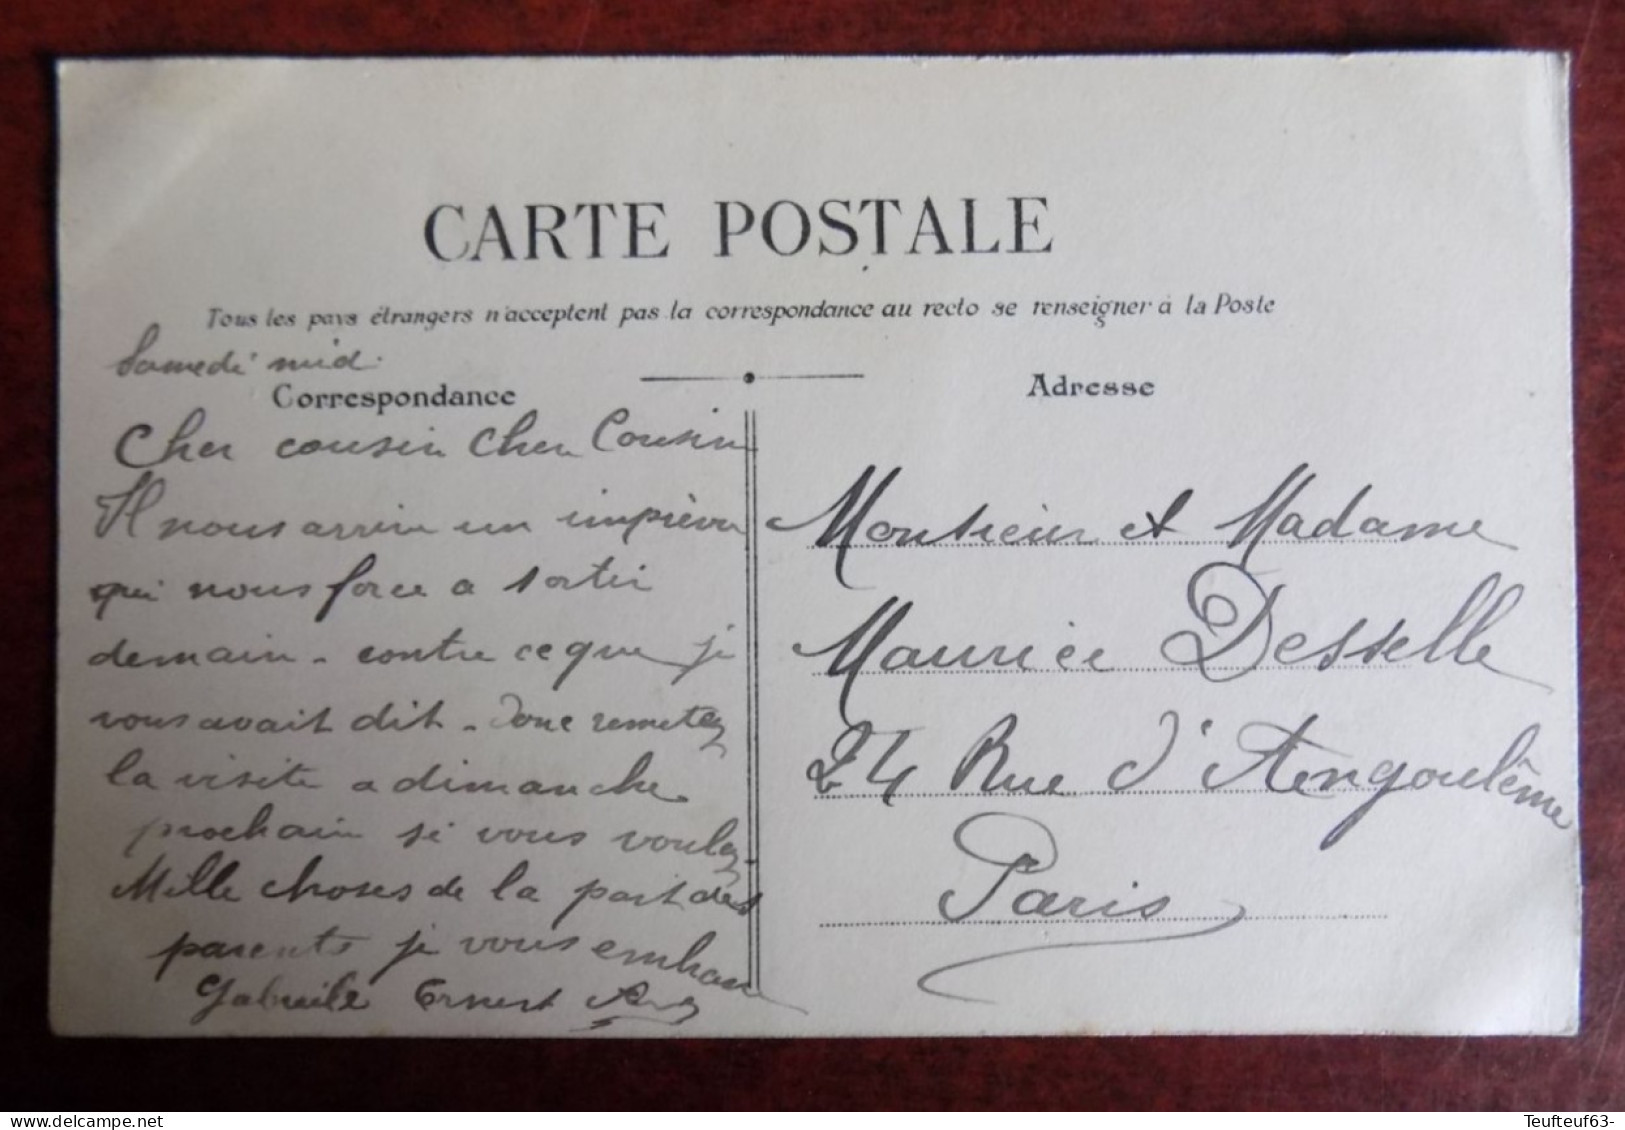 CARTE POSTALE
Tous les pays étrangers n'acceptent pas la correspondance au recto se renseigner à la Poste
Samedi mid.
Correspondance
Adresse
Cher cousin Cher Cousin
Il nous arrive un imprèvu
qui nous force a sortir
demain - contre ce que je
vous avait dit - donc remetez
la visite a dimanche
prochain si vous voulez -
Mille choses de la part des
parents je vous embrasse
Gabrielle Ernest
Monsieur et Madame
Maurice Desselle
24 Rue d'Angoulême
Paris
Teufteuf63-